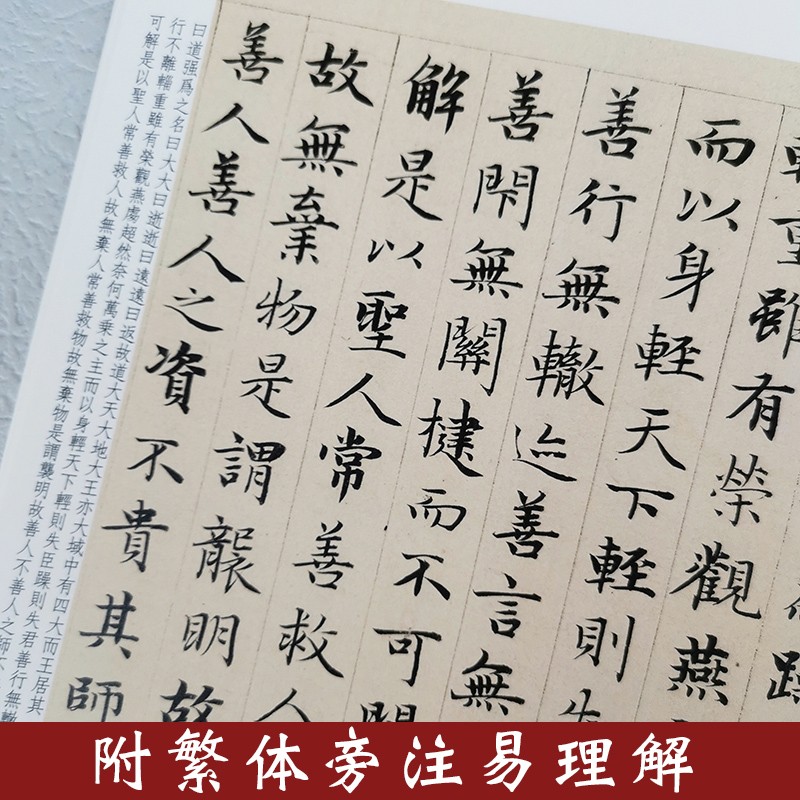 重雖有榮觀燕
而以身輕天下輕則失
善行無轍迹善言無
善閇無關揵而不可
解是以聖人常善救人
故無棄物是謂襲明故
善人善人之資不貴其師
曰道强爲之名曰大大曰逝逝曰遠遠曰返故道大天大地大王亦大域中有四大而王居其
行不離輜重雖有榮觀燕處超然奈何萬乗之主而以身輕天下輕則失臣躁則失君善行無轍
可解是以聖人常善救人故無棄人常善救物故無棄物是謂襲明故善人不善人之師不
附繁体旁注易理解